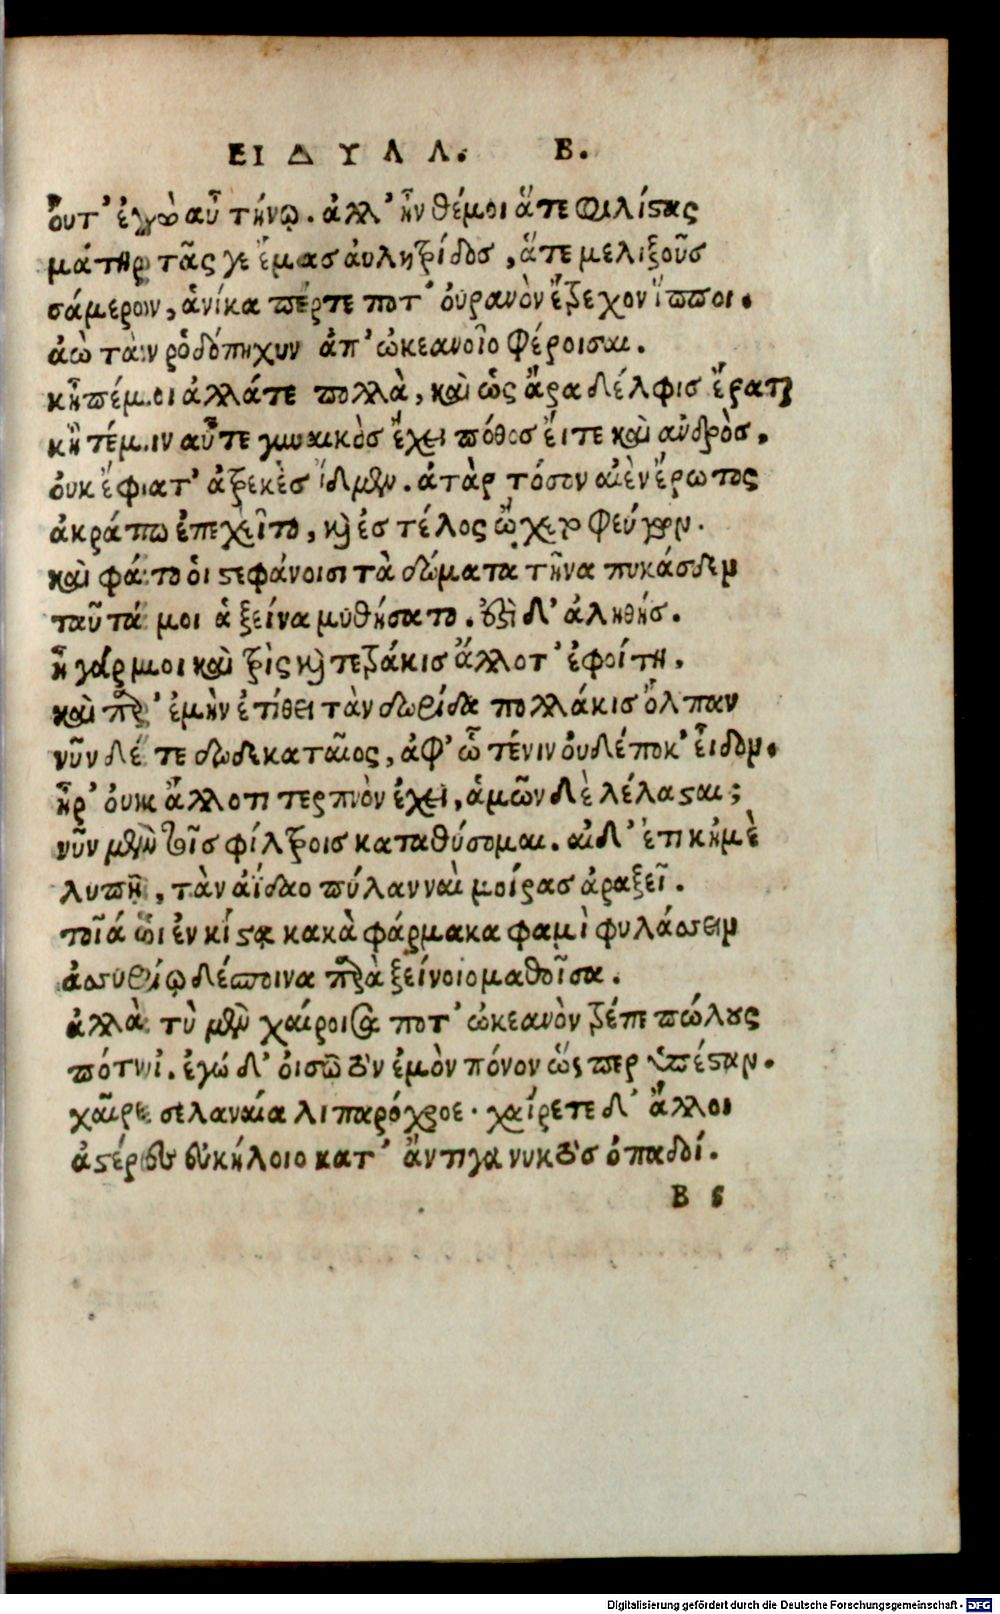 ΕΙΔΥΛΛ. Β.
ὄυτ' ἐγὼ αὖ τήνῳ. ἀλλ' ἦνθέ μοι ἅτε Φιλίςας
μάτηρ τᾶς γε ἔμας ἀυλητρίδος, ἅτε μελιξοῦς
σάμερον, ἁνίκα πέρτε ποτ' ὀυρανὸν ἔτρεχον ἵπποι.
ἀὼ τὰν ῥοδόπηχυν ἀπ' ὠκεανοῖο φέροισαι.
κἦπέ μοι ἀλλά τε πολλὰ, καὶ ὡς ἄρα δέλφις ἔραται
κἤ τέ μιν αὖτε γυναικὸς ἔχει πόθος ἔιτε καὶ ἀνδρὸς.
ὀυκ ἔφατ' ἀτρεκὲς ἴδμεν. ἀτὰρ τόσον αἰὲν ἔρωτος
ἀκράτω ἐπεχεῖτο, καὶ ἐς τέλος ᾤχετο φεύγων.
καὶ φάτο ὁι ςεφάνοισι τὰ δώματα τῆνα πυκάσδειν
ταῦτά μοι ἁ ξείνα μυθήσατο. ἔστι δ' ἀληθής.
ἦ γάρ μοι καὶ τρὶς καὶ τετράκις ἄλλοτ' ἐφοίτη.
καὶ παρ' ἐμὴν ἐτίθει τὰν δωρίδα πολλάκις ὄλπαν
νῦν δέ τε δωδεκαταῖος, ἀφ' ὧ τένιν ὀυδέποκ' εἶδον.
ἦρ' ὀυκ ἄλλο τι τερπνὸν ἔχει, ἁμῶν δὲ λέλαςαι;
νῦν μὲν τοῖς φίλτροις καταθύσομαι. αἰ δ' ἔτι κἠμὲ
λυπῆ, τὰν ἀΐδαο πύλαν ναὶ μοίρας ἀραξεῖ.
τοῖά ὡι ἐν κίςᾳ κακὰ φάρμακα φαμὶ φυλάσσειν
ἀσσυρίῳ δέσποινα παρὰ ξείνοιο μαθοῖσα.
ἀλλὰ τὺ μὲν χαίροισα ποτ' ὠκεανὸν τρέπε πώλους
πότνι'. ἐγώ δ' ὀισῶ τὸν ἐμὸν πόνον ὥςπερ ὑπέςαν.
χαῖρε σελαναία λιπαρόχροε· χαίρετε δ' ἄλλοι
ἀςέρες εὐκήλοιο κατ' ἄντιγα νυκτὸς ὀπαδοί.
Β ϛ
Digitalisierung gefördert durch die Deutsche Forschungsgemeinschaft - DFG